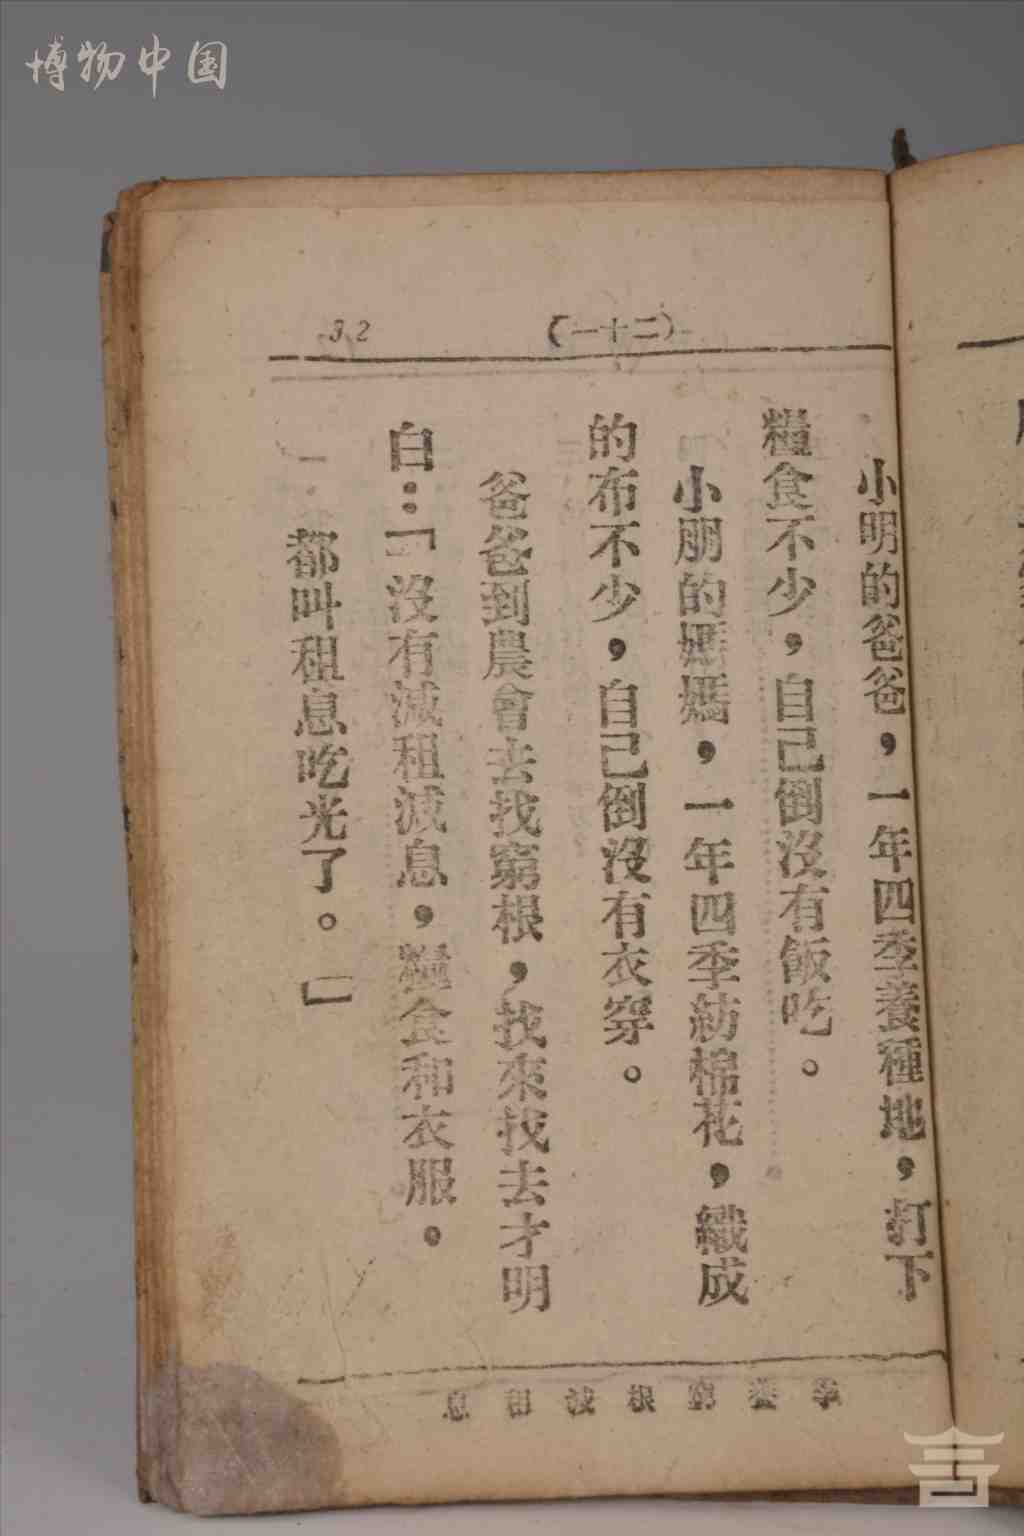 博物中国
32
(二十一)
小明的爸爸，一年四季養種地，打下
糧食不少，自己倒沒有飯吃。
小朋的媽媽，一年四季紡棉花，織成
的布不少，自己倒沒有衣穿。
爸爸到農會去找窮根，找來找去才明
白：「沒有減租減息，糧食和衣服。
都叫租息吃光了。」
季養窮根減租息